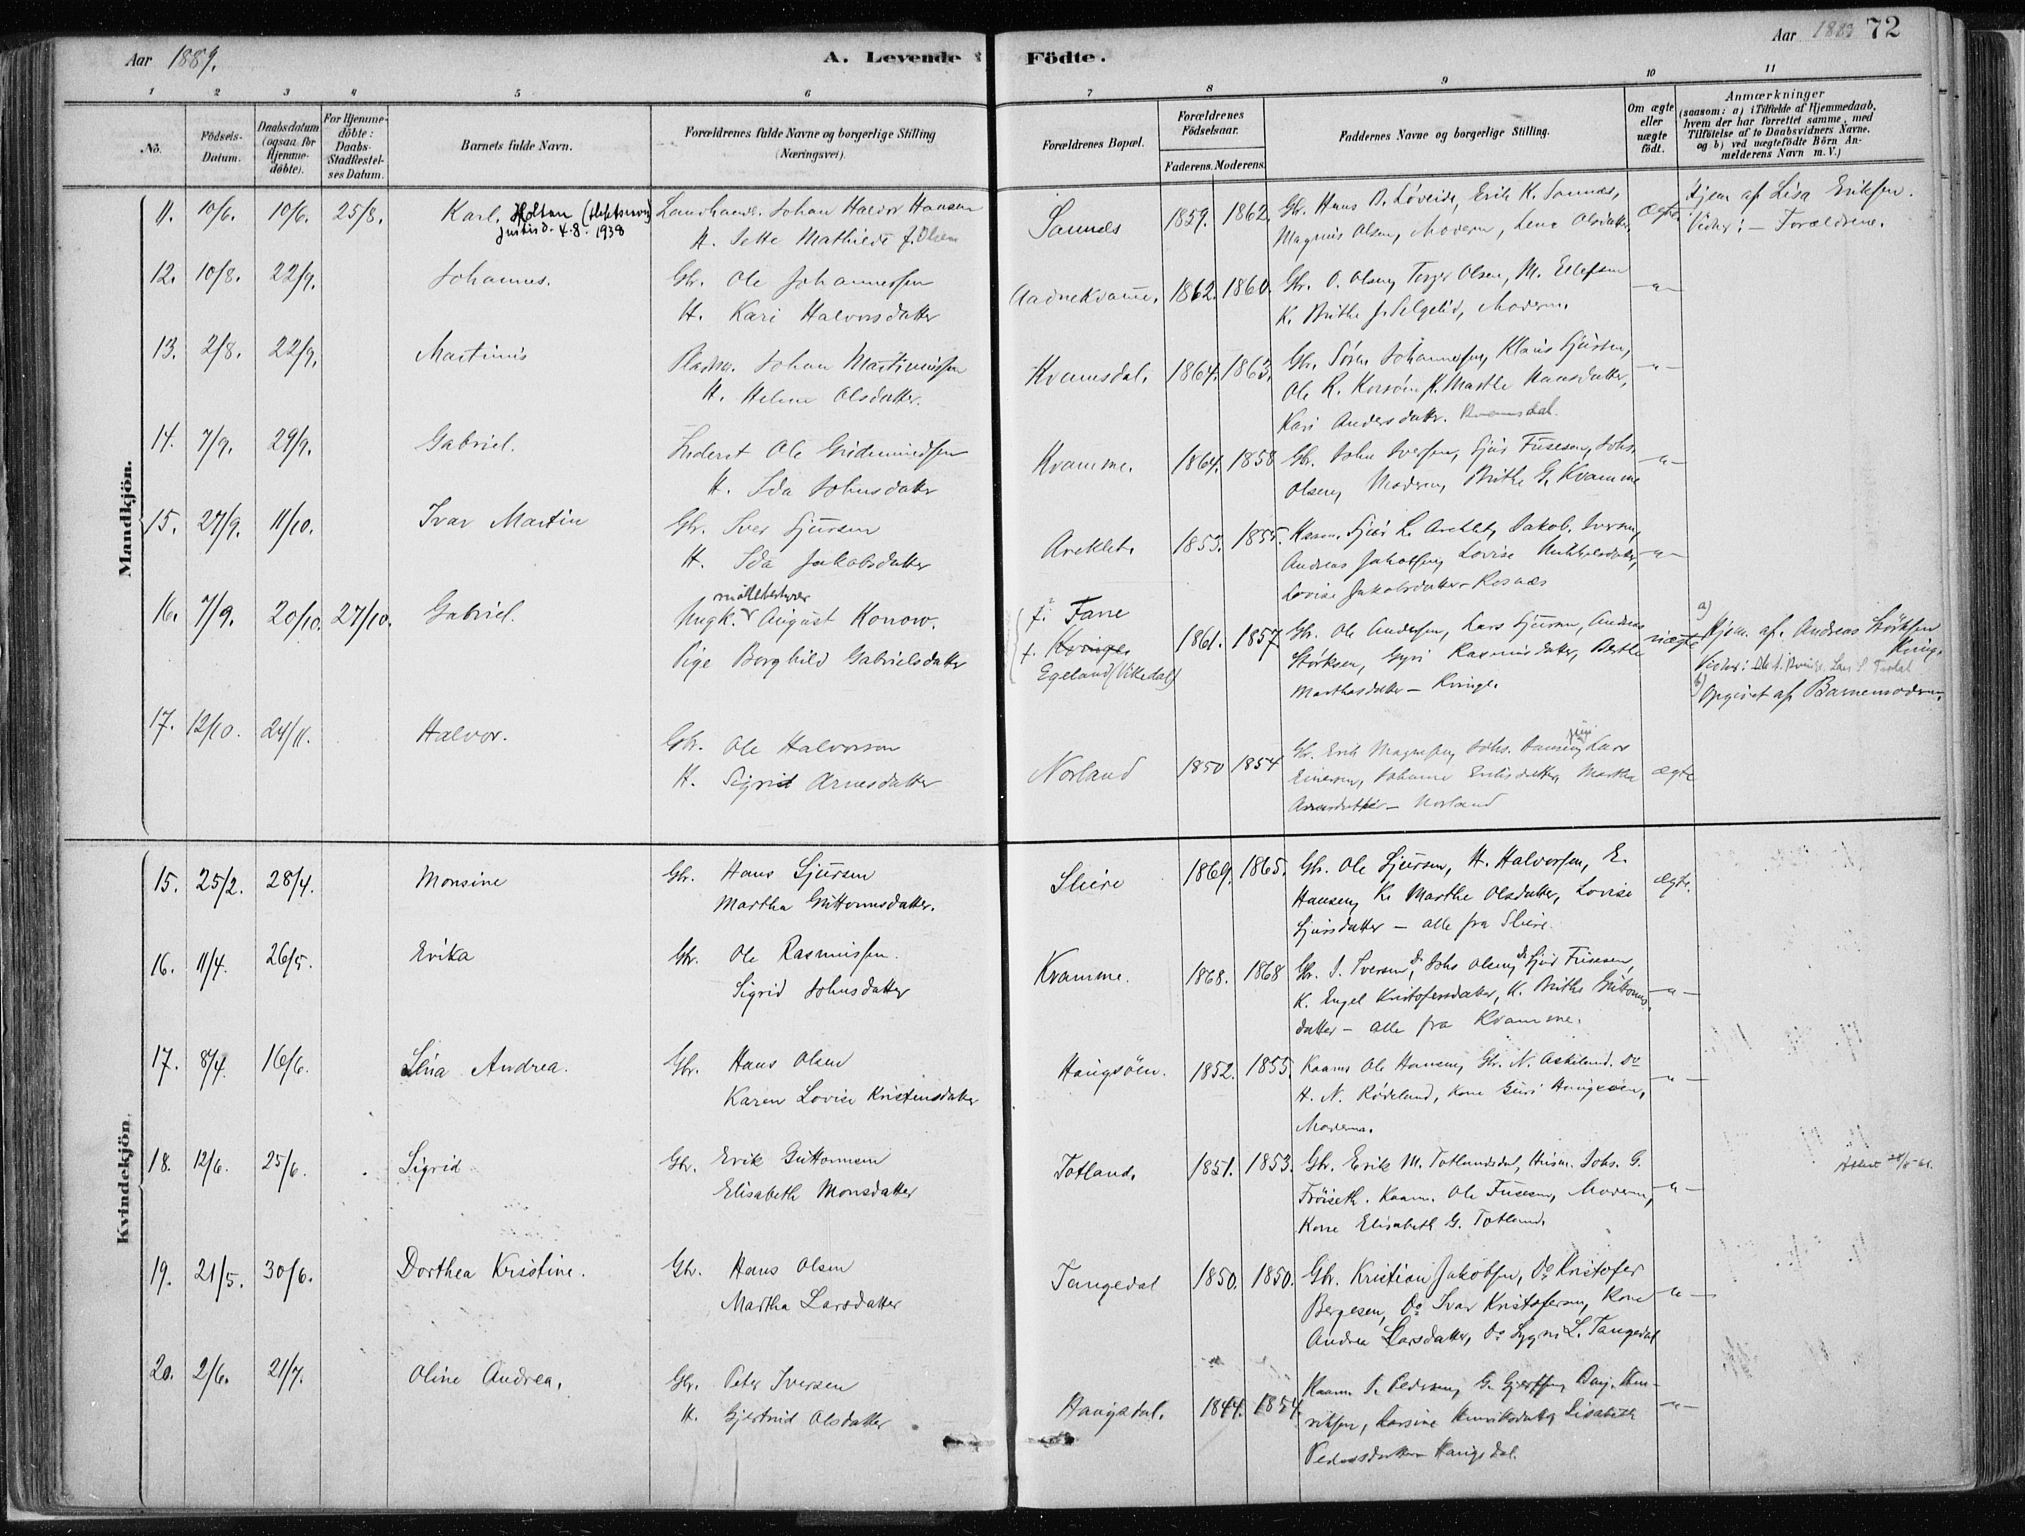 Aar 1889.
A. Levende Födte.
Aar 1889 72
1 2 3 4 5 6 7 8 9 10 11
No.
Födsels-Datum.
Daabsdatum (ogsaa for Hjemme-döbte).
For Hjemme-döbte: Daabs-Stadfæstelses Datum.
Barnets fulde Navn.
Forældrenes fulde Navne og borgerlige Stilling (Næringsvei).
Forældrenes Bopæl.
Forældrenes Födselsaar.
Faderens. Moderens.
Faddernes Navne og borgerlige Stilling.
Om ægte eller uægte födt.
Anmærkninger
(saasom: a) i Tilfælde af Hjemmedaab, hvem der har forrettet samme, med Tilföielse af to Daabsvidners Navne. og b) ved uægtefödte Börn Anmelderens Navn m. V.)
Mandkjön.
11. 10/6. 10/6. 25/8. Karl. Holtan
Justisd. 4.8. 1938
Landhandl. Johan Haldor Hansen
H. Jette Mathilde f. Olsen
Sannes 1859. 1862.
Gbr. Hans B. Løveide, Erik K. Sannes,
Magnus Olsen, Moderen, Lena Olsdatter.
Ægte
Hjem. af Lisa Eriksen.
Vidner: — Forældrene.
12. 10/8. 22/9. Johannes.
Gbr. Ole Johannessen
H. Kari Halvorsdatter
Aadnekvamme. 1862. 1860.
Gbr. O. Olsen, Terjer Olsen, M. Ellefsen
K. Brithe J. Selgelid, Moderen.
—"—
13. 2/8. 22/9. Martinus
Pladsm. Johan Martinussen
H. Helene Olsdatter.
Kvamsdal. 1864. 1863.
Gbr. Søren Johannessen, Klaus Sjursen,
Ole R. K. Marthe Hansdatter,
Kari Andersdatter. Kvamsdal.
—"—
14. 7/9. 29/9. Gabriel.
Ole Gudmundsen
H. Ida Johnsdatter
Kvamme. 1864. 1858
Gbr. John Iversen, Sjur Fusesen, Johs.
Olsen, Moderen, Brithe G. Kvamme
—"—
15. 27/9. 11/10. Ivar Martin
Gbr. Iver Sjursen
H. Ida Jakobsdatter
Areklet. 1853. 1855.
Sjur L. Areklet, Jakob Iversen,
Andreas Jakobsen, Lovise
Lovise Jakobsdatter — Rosnæs
—"—
16. 7/9. 20/10. 27/10. Gabriel.
Ungk. August Konow.
Pige Borghild Gabrielsdatter
f. Fane
f. Kvinge
Egeland (Vikedal)
1861. 1857
Gbr. Ole Andersen, Lars Sjursen, Andreas
Størksen, Gyri Rasmusdatter, Berthe
Marthasdatter — Kvinge.
uægte
a) Hjem. af. Andreas Størksen
Kvinge
Vidner: Ole A. Kvinge, Lars S.
b) Opgivet af Barnemoderen.
17. 12/10. 24/11. Halvor.
Gbr. Ole Halvorsen
H. Sigrid Arnesdatter
Norland 1850 1854
Gbr. Erik Magnesen, Johs. Lars
Einersen, Johanne Eriksdatter, Martha
Arnesdatter — Norland
ægte
Kvindekjön.
15. 25/2. 28/4. Monsine
Gbr. Hans Sjursen
Martha Guttormsdatter.
Sleire 1869. 1865.
Gbr. Ole Sjursen, H. Halvorsen, E.
Hansen, K. Marthe Olsdatter, Lovise
Sjursdatter — alle fra Sleire.
ægte.
16. 11/4. 26/5. Erika
Gbr. Ole Rasmussen.
Sigrid Johnsdatter
Kvamme. 1868. 1868
Gbr. J. Iversen, Do Johs Olsen, Do Sjur Fusesen,
K. Engel Kristofersdatter, K. Brithe Guttorms-
datter — alle fra Kvamme.
—"—
17. 8/4. 16/6. Lina Andrea.
Gbr. Hans Olsen
Karen Lovise Kristensdatter
Haugsøen. 1852. 1855.
Kaarm. Ole Hansen, Gbr. N. Askeland. Do
H. N. Rødeland, Kone Guri Haugsøen,
Moderen.
—"—
18. 12/6. 25/6. Sigrid
Gbr. Erik Guttormsen
Elisabeth Monsdatter
Totland. 1851. 1853.
Gbr. Erik M. Totlandsdal, Husm. Johs. G.
Frøiseth. Kaarm. Ole Fusesen, Moderen,
Kone Elisabeth G. Totland.
—"—
19. 21/5. 30/6. Dorthea Kristine.
Gbr. Hans Olsen
Martha Larsdatter
Tangedal 1850. 1850.
Gbr. Kristian Jakobsen, Do Kristofer
Bergesen, Do Ivar Kristofersen, Kone
Andrea Larsdatter, Do Sygni L. Tangedal
—"—
20. 2/6. 21/7. Oline Andrea.
Gbr. Peter Iversen
H. Gjertrud Olsdatter
Haugsdal. 1844. 1854.
Kaarm. P. Pedersen, G. Gjertsen, Benj. Hen-
riksen, Karsine Henriksdatter, Lisabeth
Pedersdatter Haugsdal.
—"—